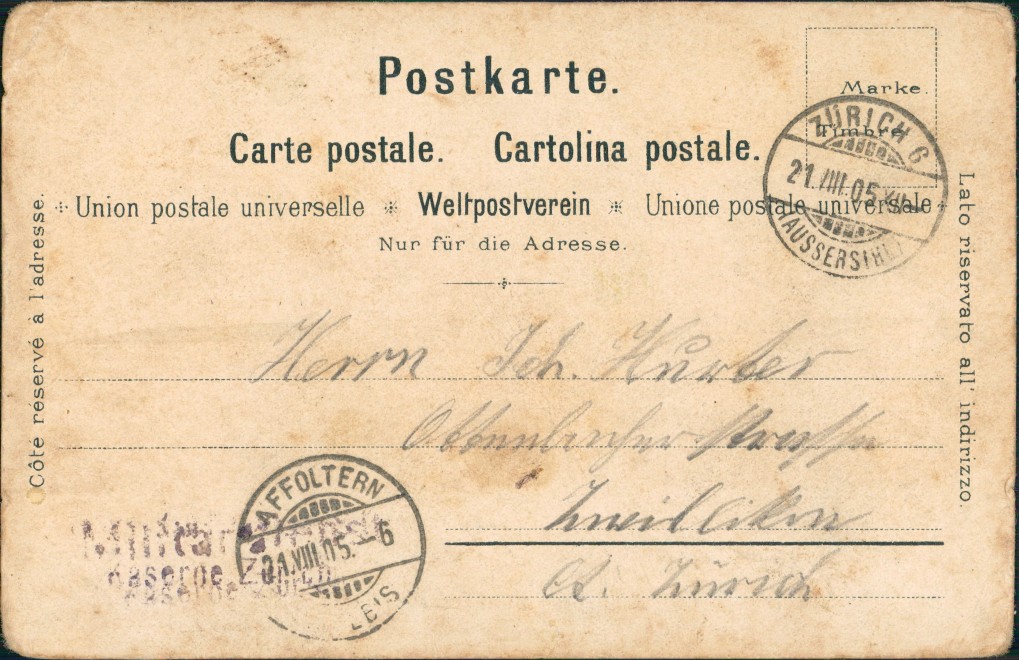 Postkarte.
Marke.
Timbre.
Carte postale. Cartolina postale.
Union postale universelle * Weltpostverein * Unione postale universale
Nur für die Adresse.
Côté réservé à l'adresse.
Lato riservato all' indirizzo.
ZÜRICH 6
21.VIII.05.
(AUSSERSIHL)
Herrn Joh. Hurter
Ottenbacherstrasse
Zwillikon
Ct. Zürich
AFFOLTERN
21.VIII.05. 6
Militär
Kaserne Zürich